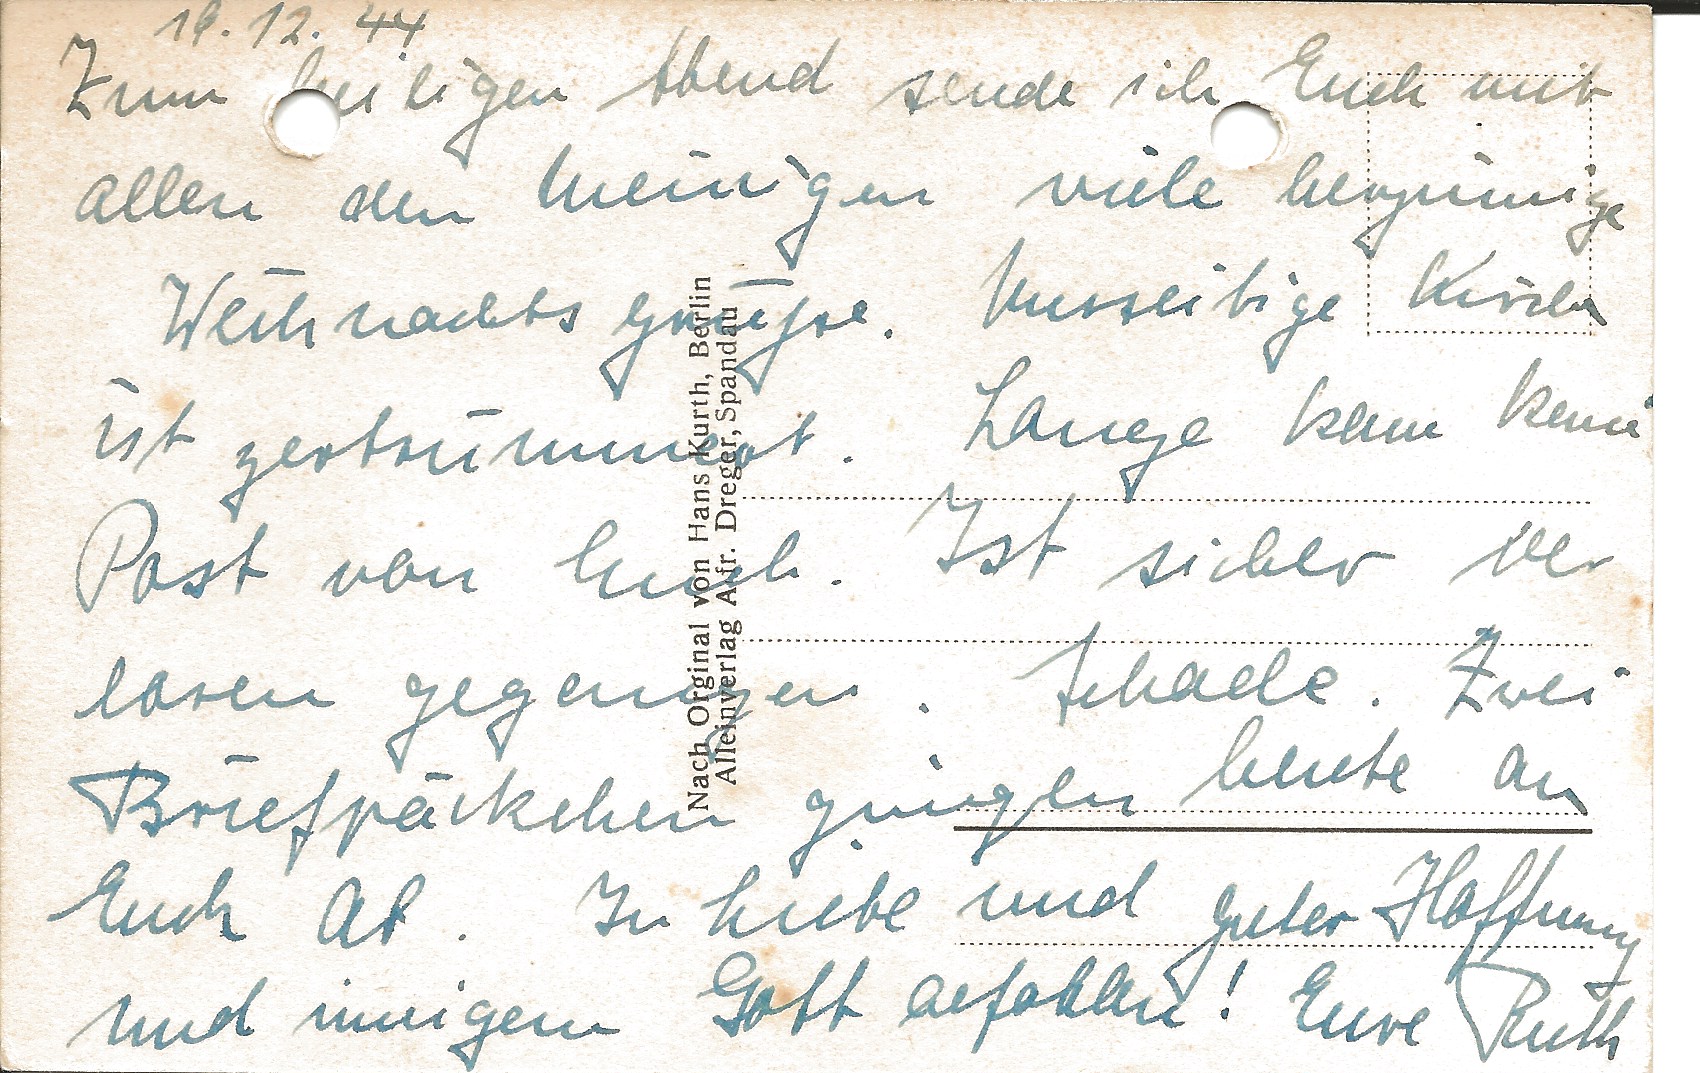 19.12.44
Zum heiligen Abend sende ich Euch mit
allen den Meinigen viele herzinnige
Weihnachtsgrüsse. Umseitige Kirche
ist zertrümmert. Lange kam keine
Post von Euch. Ist sicher ver
loren gegangen. Schade. Zwei
Briefpäckchen gingen heute an
Euch ab. In Liebe und guter Hoffnung
und innigem Gott befohlen! Eure Ruth
Nach Orginal von Hans Kurth, Berlin
Alleinverlag Afr. Dreger, Spandau